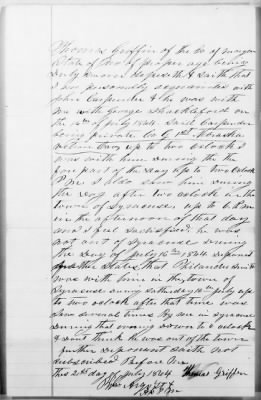 Thomas Griffin of the Co of Morgan
State of Mo of proper age being
Duly Sworn deposeth & Saith that
I am personally acquainted with
John Carpenter & he was with
me with George Shackleford on
the 16th of July 1864 Said Carpenter
being private Co G 1st Nebraska
up to two oclock I
was with him during the the
fore part of the day up to two Oclock
P.M I also saw him during
the day after two oclock in the
town of Syracuse up to 6 P.M
in the afternoon of that day
and I feel Satisfied he was
not out of Syracuse during
the day of July 16th 1864 deponent
further States that
was with him in the town of
Syracuse during Saturday 16th July up
to two oclock after that time was
seen several times by me in Syracuse
during that evening down to 6 oclock
& dont think he was out of the town
further deponent saith not
Subscribed Before Me
this 21st day of July 1864 Thomas Griffin